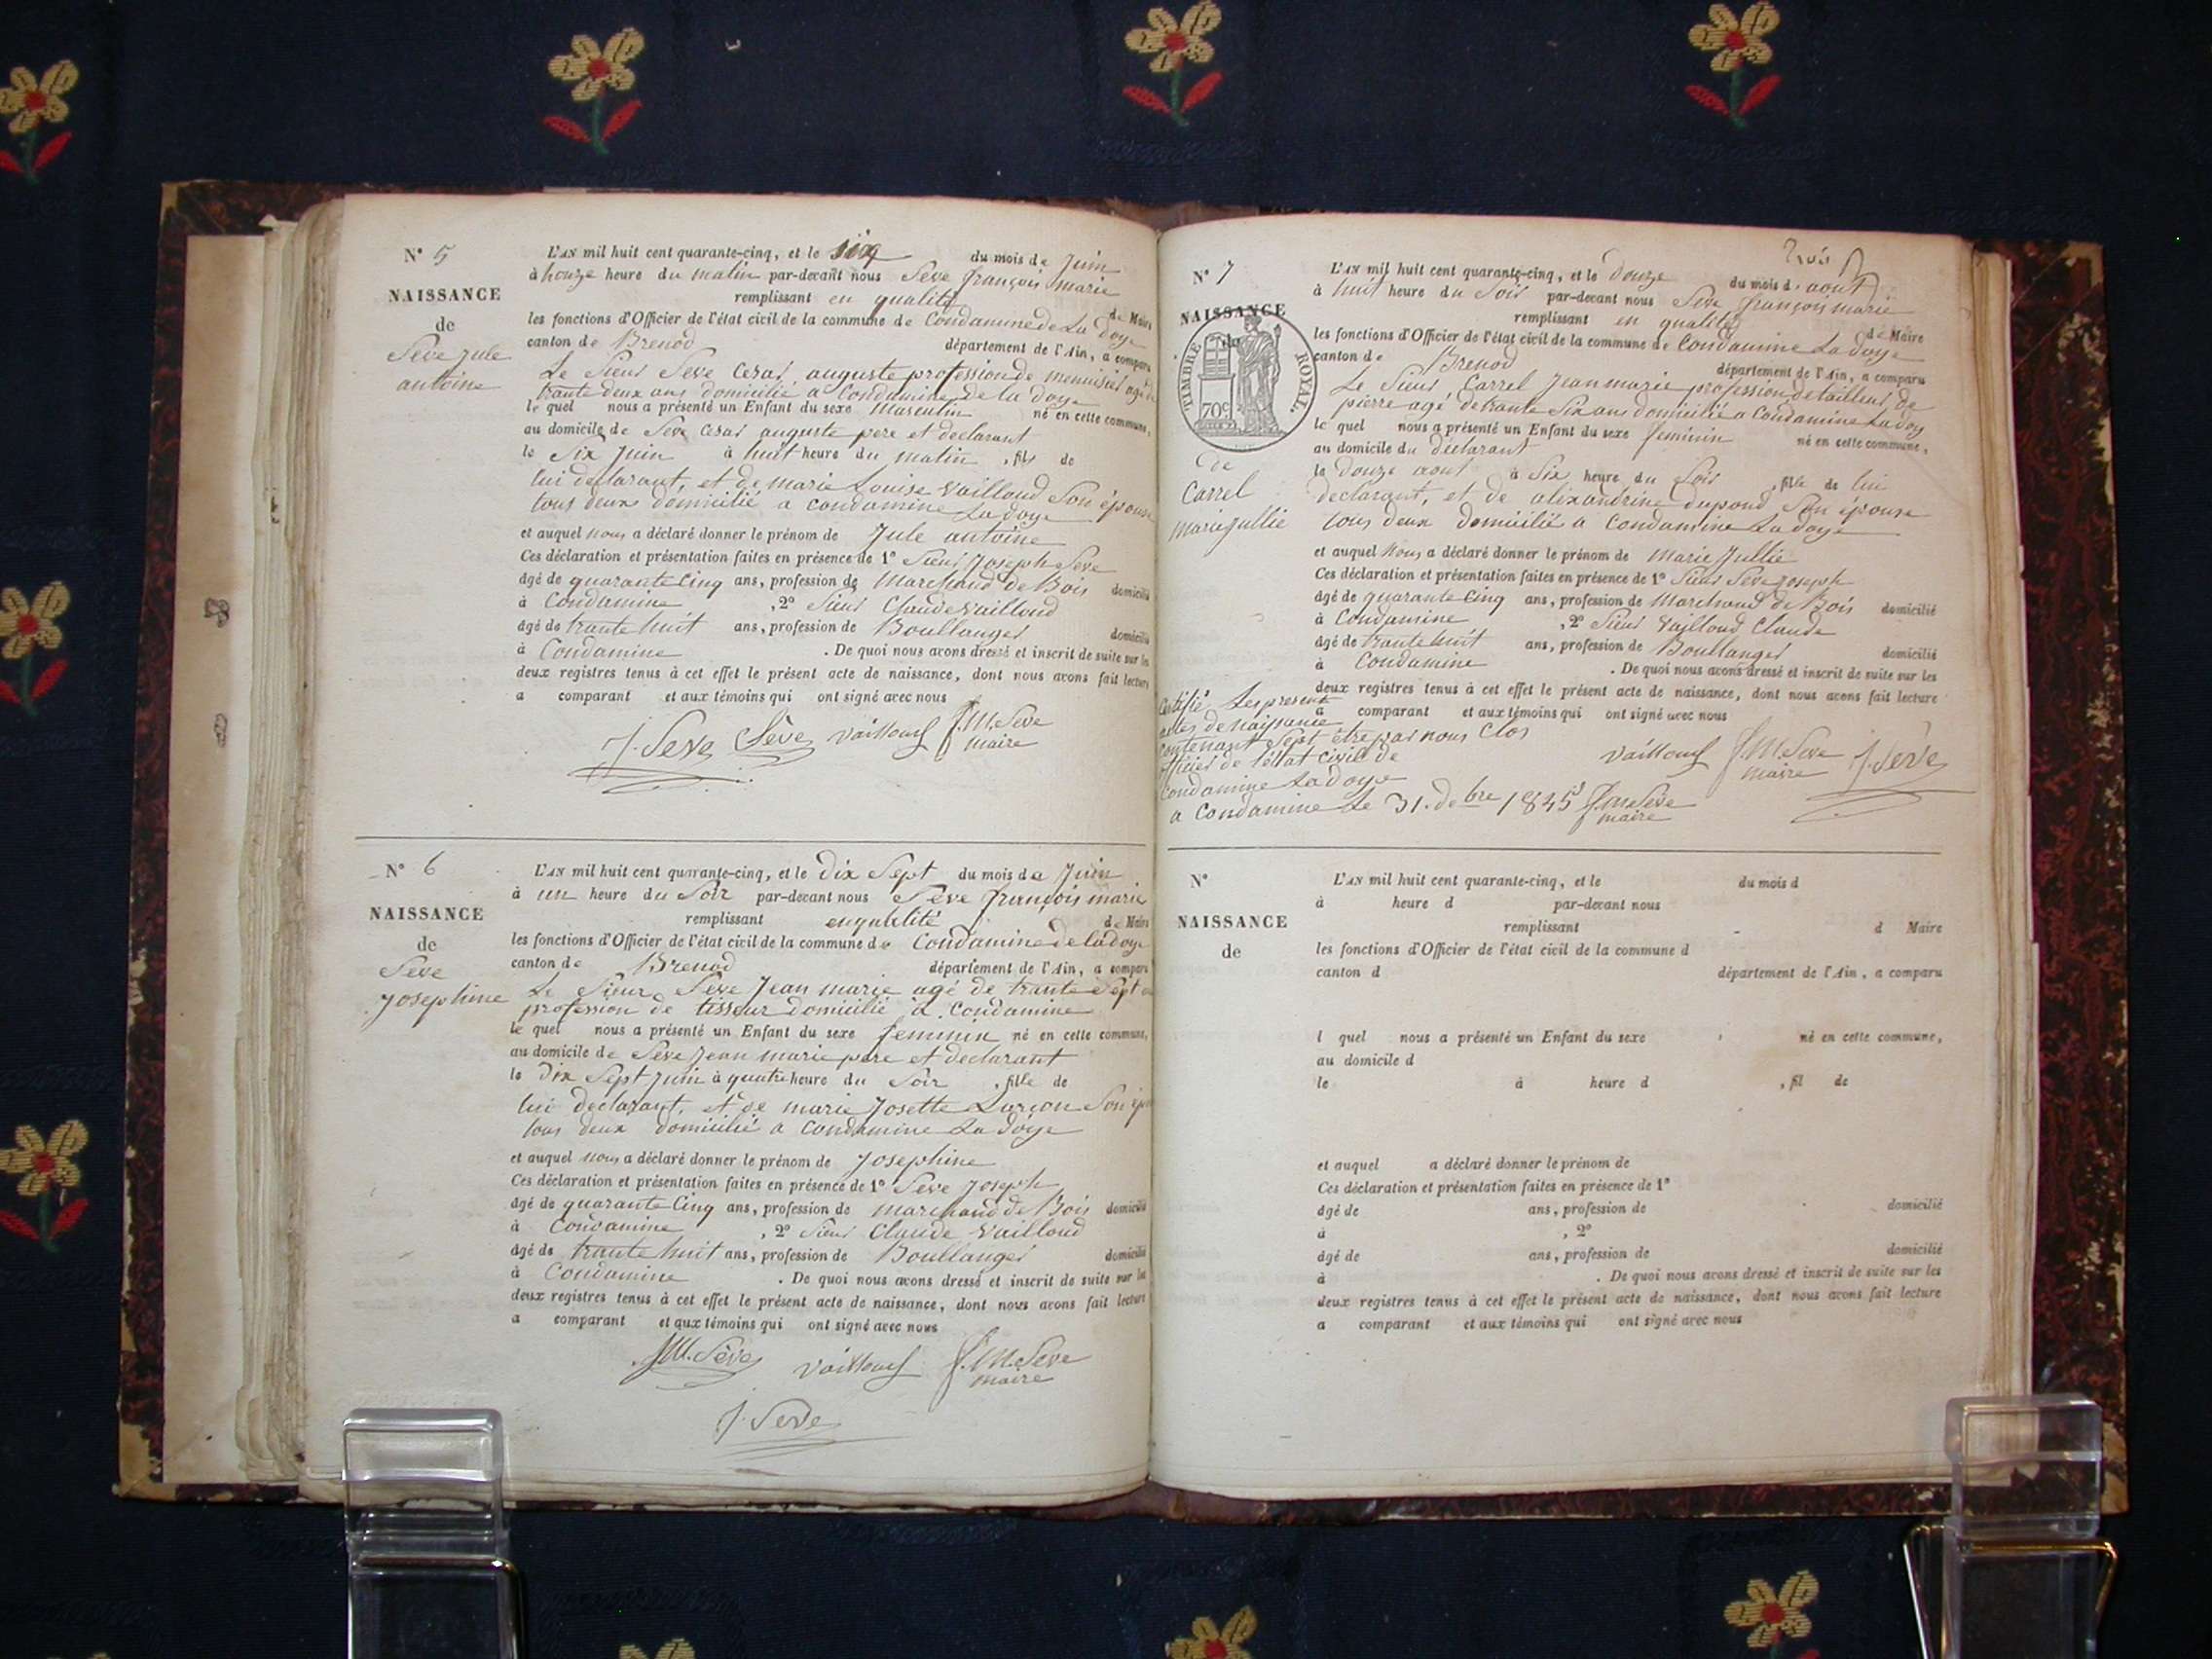 N° 5
NAISSANCE
de
Seve jule
antoine
L'AN mil huit cent quarante-cinq, et le du mois de juin
à honze heure du matin par-devant nous Seve françois marie
remplissant en qualité de Maire
les fonctions d'Officier de l'état civil de la commune de Condamine de La doye
canton de Brenod département de l'Ain, a comparu
Le Sieur Seve Cesar auguste profession de menuisier agé de
trante deux ans domicilié a Condamine de la doye
le quel nous a présenté un Enfant du sexe Masculin né en cette commune,
au domicile de Seve Cesar auguste pere et declarant
le Six juin à huit heure du matin , fils de
lui declarant, et de marie Louise vailloud Son épouse
tous deux domicilié a condamine La doye
et auquel nous a déclaré donner le prénom de Jule antoine
Ces déclaration et présentation faites en présence de 1° Sieur Joseph Seve
âgé de quarante Cinq ans, profession de Marchand de Bois domicilié
à Condamine , 2° Sieur Claude vailloud
âgé de trante huit ans, profession de Boullanger domicilié
à Condamine . De quoi nous avons dressé et inscrit de suite sur les
deux registres tenus à cet effet le présent acte de naissance, dont nous avons fait lecture
a comparant et aux témoins qui ont signé avec nous
J. Seve Sève vailloud f. M. Seve
maire
N° 6
NAISSANCE
de
Seve
Josephine
L'AN mil huit cent quarante-cinq, et le dix Sept du mois de Juin
à un heure du Soir par-devant nous Seve françois marie
remplissant enqualité de Maire
les fonctions d'Officier de l'état civil de la commune de Condamine de la doye
canton de Brenod département de l'Ain, a comparu
Le Sieur Seve Jean marie agé de trante Sept
profession de tisseur domicilié à Condamine
le quel nous a présenté un Enfant du sexe feminin né en cette commune,
au domicile de Seve Jean marie pere et declarant
le Dix Sept juin à quatre heure du Soir , fille de
lui declarant, et de marie Josette Larçon Son
tous deux domicilié a condamine La doye
et auquel nous a déclaré donner le prénom de Josephine
Ces déclaration et présentation faites en présence de 1° Seve Joseph
âgé de quarante Cinq ans, profession de marchand de Bois domicilié
à Condamine , 2° Sieur Claude vailloud
âgé de trante huit ans, profession de Boullanger domicilié
à Condamine . De quoi nous avons dressé et inscrit de suite sur les
deux registres tenus à cet effet le présent acte de naissance, dont nous avons fait lecture
a comparant et aux témoins qui ont signé avec nous
JM. Sève vailloud f. M. Seve
maire
J. Seve
trois
N° 7
NAISSANCE
TIMBRE ROYAL.
70c
de
Carrel
marie jullie
L'AN mil huit cent quarante-cinq, et le douze du mois d'aout
à huit heure du Soir par-devant nous Seve françois marie
remplissant en qualité de Maire
les fonctions d'Officier de l'état civil de la commune de Condamine La doye
canton de Brenod département de l'Ain, a comparu
Le Sieur Carrel Jean marie profession de tailleur de
pierre agé de trante Six ans domicilié a Condamine La doy
le quel nous a présenté un Enfant du sexe feminin né en cette commune,
au domicile du déclarant
le douze aout à Six heure du Soir , fille de lui
declarant, et de alixandrine dupond Son épouse
tous deux domicilié a Condamine La doye
et auquel nous a déclaré donner le prénom de Marie Jullie
Ces déclaration et présentation faites en présence de 1° Sieur Seve Joseph
âgé de quarante Cinq ans, profession de Marchand de Bois domicilié
à Condamine , 2° Sieur vailloud Claude
âgé de trante huit ans, profession de Boullanger domicilié
à Condamine . De quoi nous avons dressé et inscrit de suite sur les
deux registres tenus à cet effet le présent acte de naissance, dont nous avons fait lecture
a comparant et aux témoins qui ont signé avec nous
vailloud f. M. Seve J. Sève
maire
Certifié Les present
actes de naissance
contenant Sept être par nous Clos
officier de l'état civil de
Condamine La doye
a Condamine Le 31. debre 1845 f. m Sève
maire
N°
NAISSANCE
de
L'AN mil huit cent quarante-cinq, et le du mois d
à heure d par-devant nous
remplissant d Maire
les fonctions d'Officier de l'état civil de la commune d
canton d département de l'Ain, a comparu
l quel nous a présenté un Enfant du sexe né en cette commune,
au domicile d
le à heure d , fil de
et auquel a déclaré donner le prénom de
Ces déclaration et présentation faites en présence de 1°
âgé de ans, profession de domicilié
à , 2°
âgé de ans, profession de domicilié
à . De quoi nous avons dressé et inscrit de suite sur les
deux registres tenus à cet effet le présent acte de naissance, dont nous avons fait lecture
a comparant et aux témoins qui ont signé avec nous